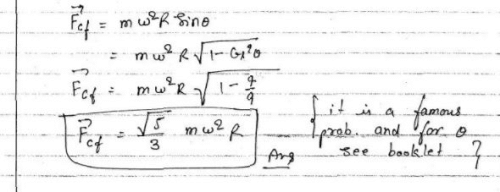 F⃗cf = mω²R sinθ
= mω²R √(1 - cos²θ)
F⃗cf = mω²R √(1 - 4/9)
F⃗cf = √5/3 mω²R Ans
{ it is a famous
prob. and for θ
see booklet }